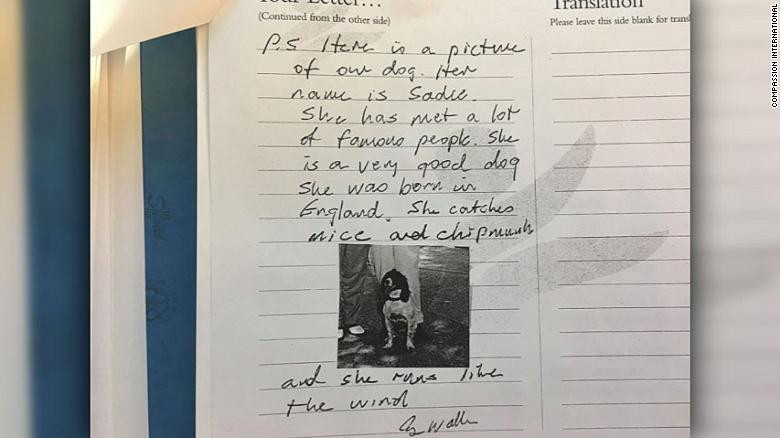 Your Letter...
(Continued from the other side)
P.S Here is a picture
of our dog. Her
name is Sadie.
She has met a lot
of famous people. She
is a very good dog
She was born in
England. She catches
mice and chipmunks
and she runs like
the wind
G. Walker
Translation
Please leave this side blank for transl
COMPASSION INTERNATIONAL